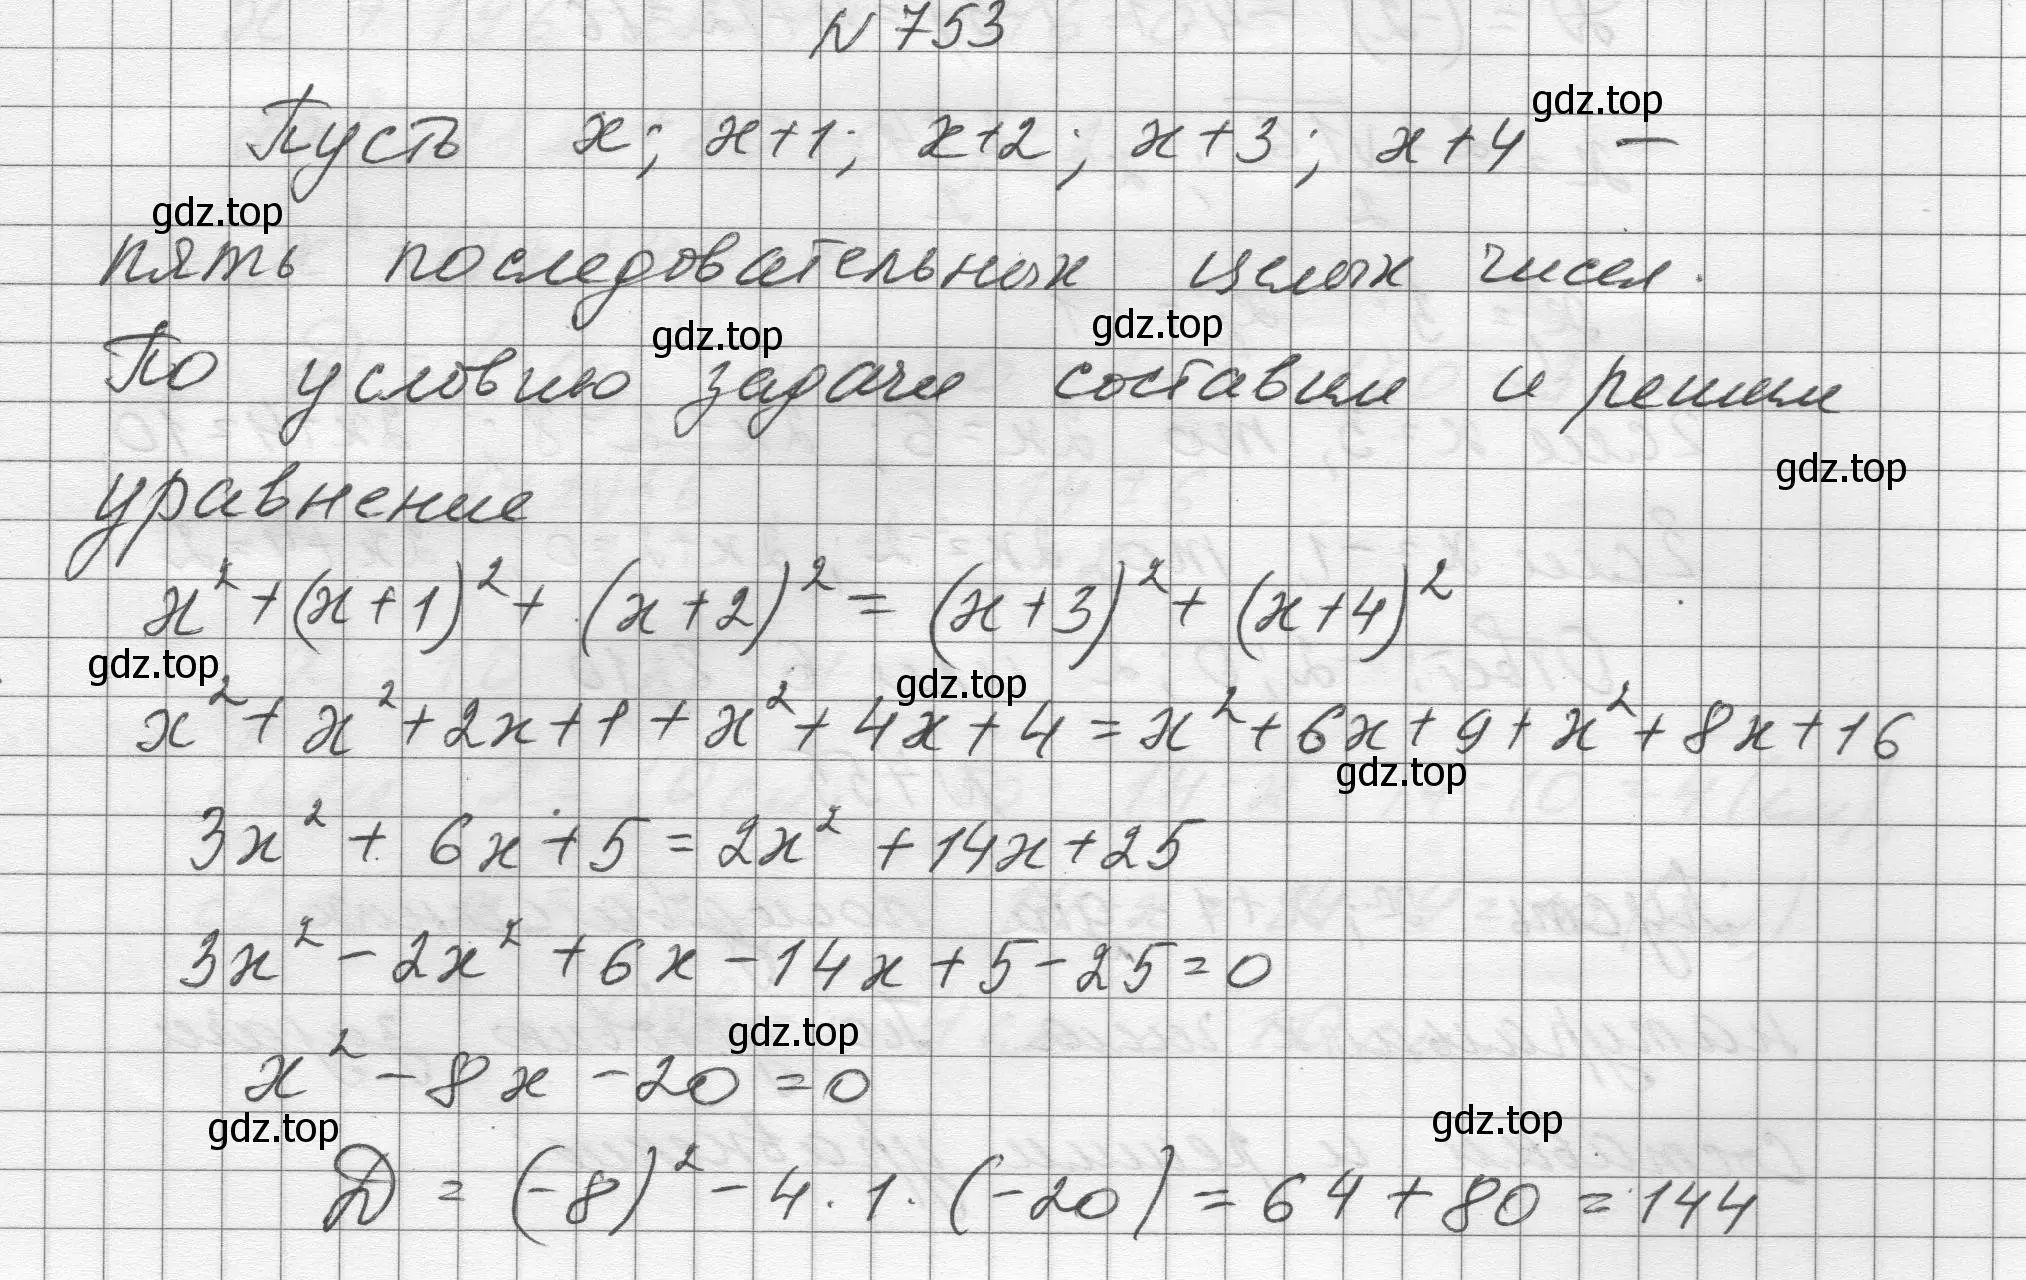 N 753
gdz.top
Пусть x; x+1; x+2; x+3; x+4 —
gdz.top
пять последовательных целых чисел.
gdz.top gdz.top
По условию задачи составим и решим
gdz.top
уравнение
x² + (x+1)² + (x+2)² = (x+3)² + (x+4)²
gdz.top gdz.top
x² + x² + 2x + 1 + x² + 4x + 4 = x² + 6x + 9 + x² + 8x + 16
gdz.top
3x² + 6x + 5 = 2x² + 14x + 25
3x² - 2x² + 6x - 14x + 5 - 25 = 0
gdz.top
x² - 8x - 20 = 0
gdz.top gdz.top
D = (-8)² - 4 · 1 · (-20) = 64 + 80 = 144